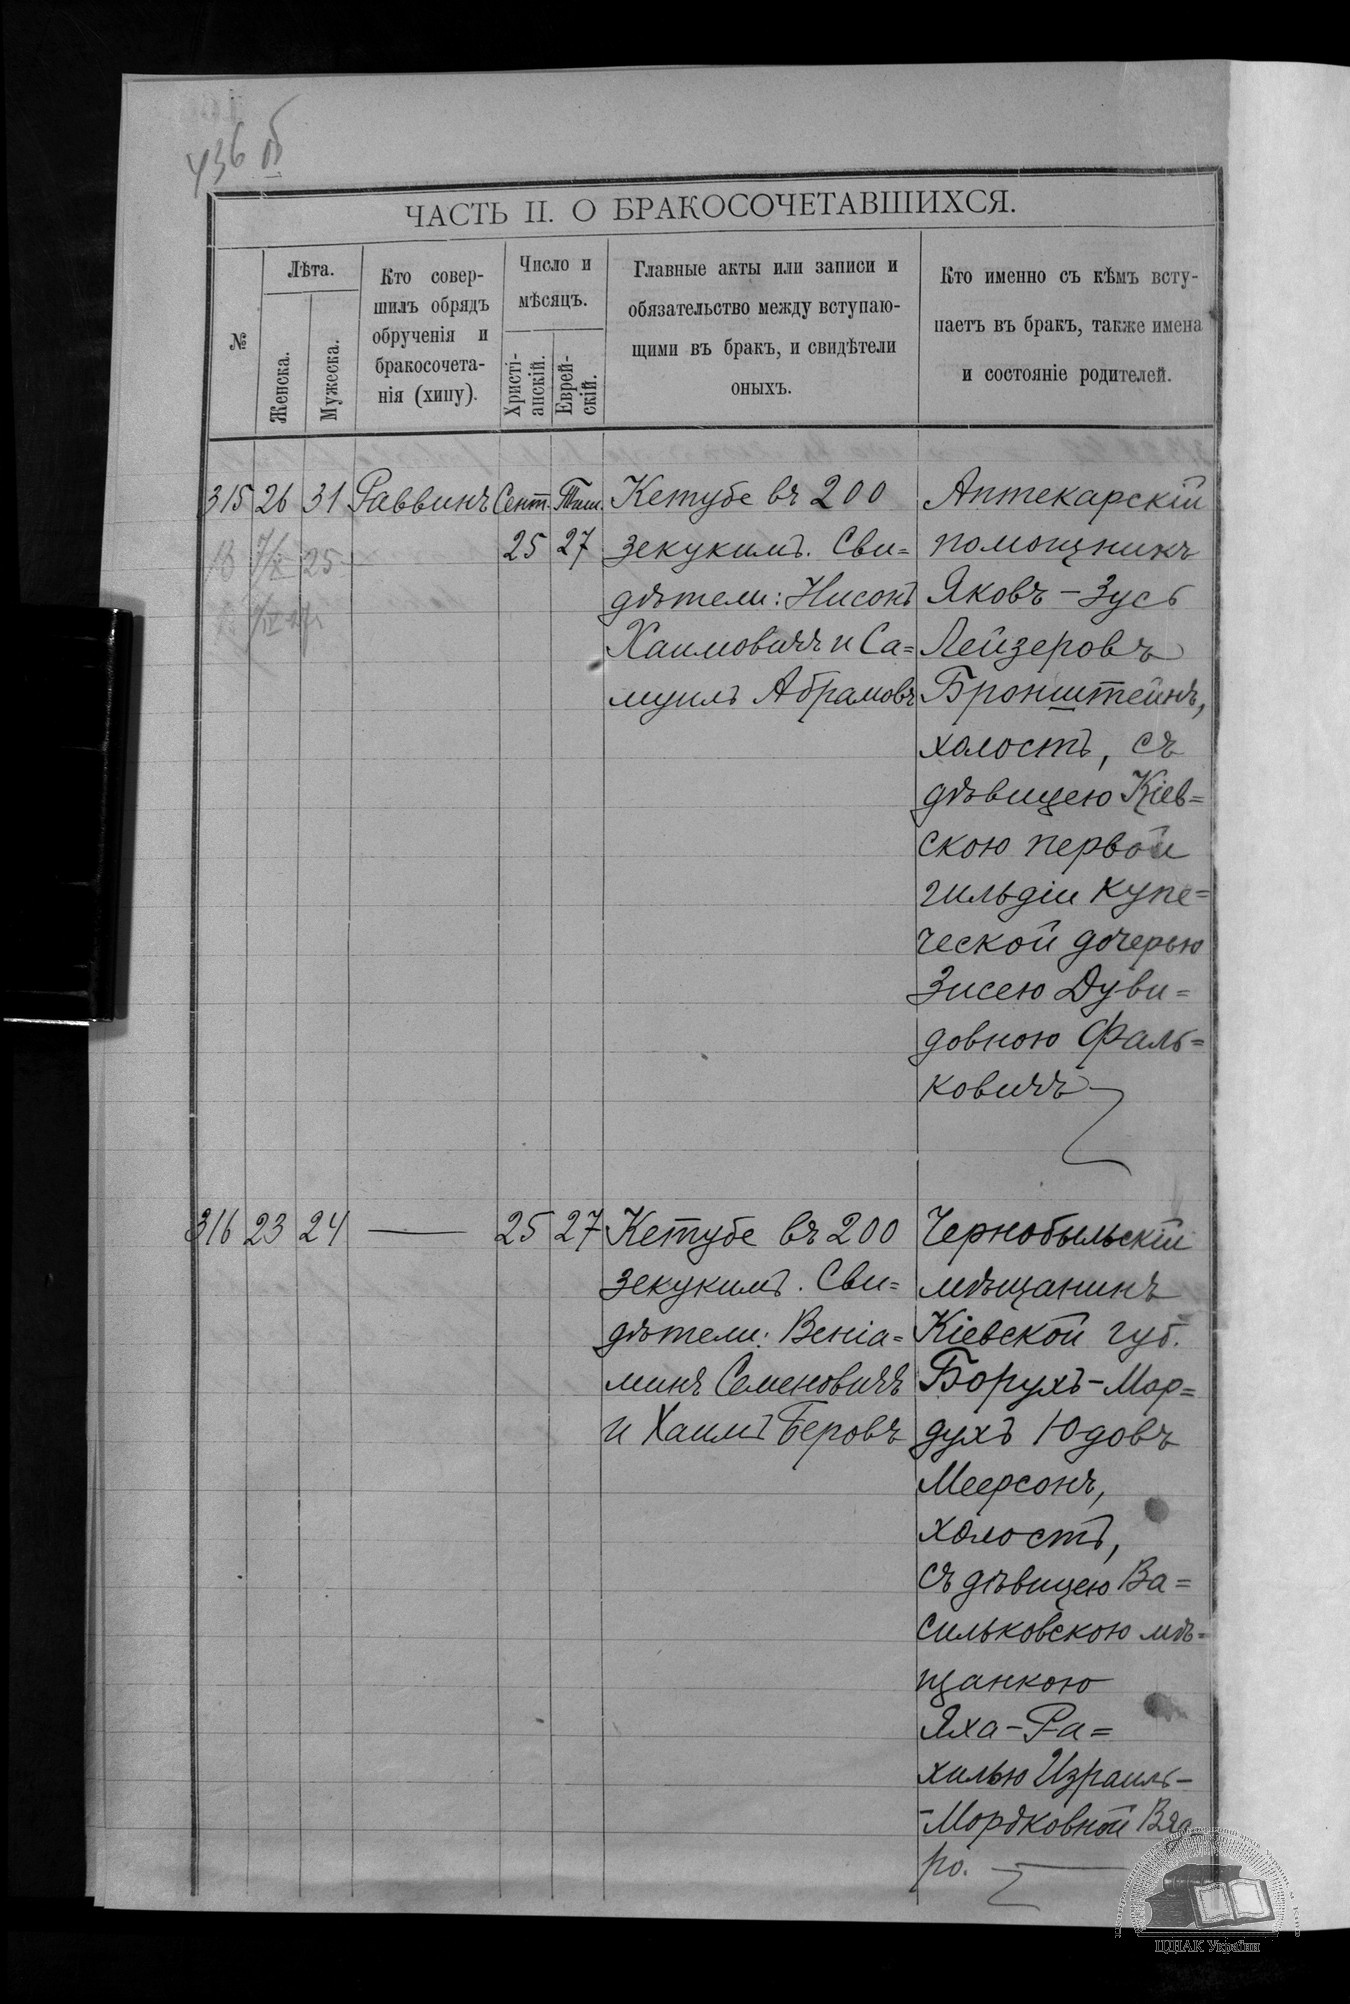 436 об
ЧАСТЬ II. О БРАКОСОЧЕТАВШИХСЯ.
№
Лѣта.
Женска.
Мужеска.
Кто совер-
шилъ обрядъ
обрученія и
бракосочета-
нія (хипу).
Число и
мѣсяцъ.
Христі-
анскій.
Еврей-
скій.
Главные акты или записи и
обязательство между вступаю-
щими въ бракъ, и свидѣтели
оныхъ.
Кто именно съ кѣмъ всту-
паетъ въ бракъ, также имена
и состояніе родителей.
315 26 31 Раввинъ Сент. Тиш.
25 27
Кетубе въ 200
зекукимъ. Сви=
дѣтели: Нисонъ
Хаимовичъ и Са=
муилъ Абрамовъ
Аптекарскій
помощникъ
Яковъ-Зусь
Лейзеровъ
Бронштейнъ,
холостъ, съ
дѣвицею Кіев=
скою первой
гильдіи купе=
ческой дочерью
Зисею Дуви=
довною Фаль=
ковичъ
316 23 24 — 25 27
Кетубе въ 200
зекукимъ. Сви=
дѣтели: Веніа=
минъ Семеновичъ
и Хаимъ Беровъ
Чернобыльскій
мѣщанинъ
Кіевской губ.
Борухъ-Мор=
духъ Юдовъ
Меерсонъ,
холостъ,
съ дѣвицею Ва=
сильковскою мѣ=
щанкою
Яха-Ра=
хилью Израиль-
-Мордковной
ро.
ЦДІАК України